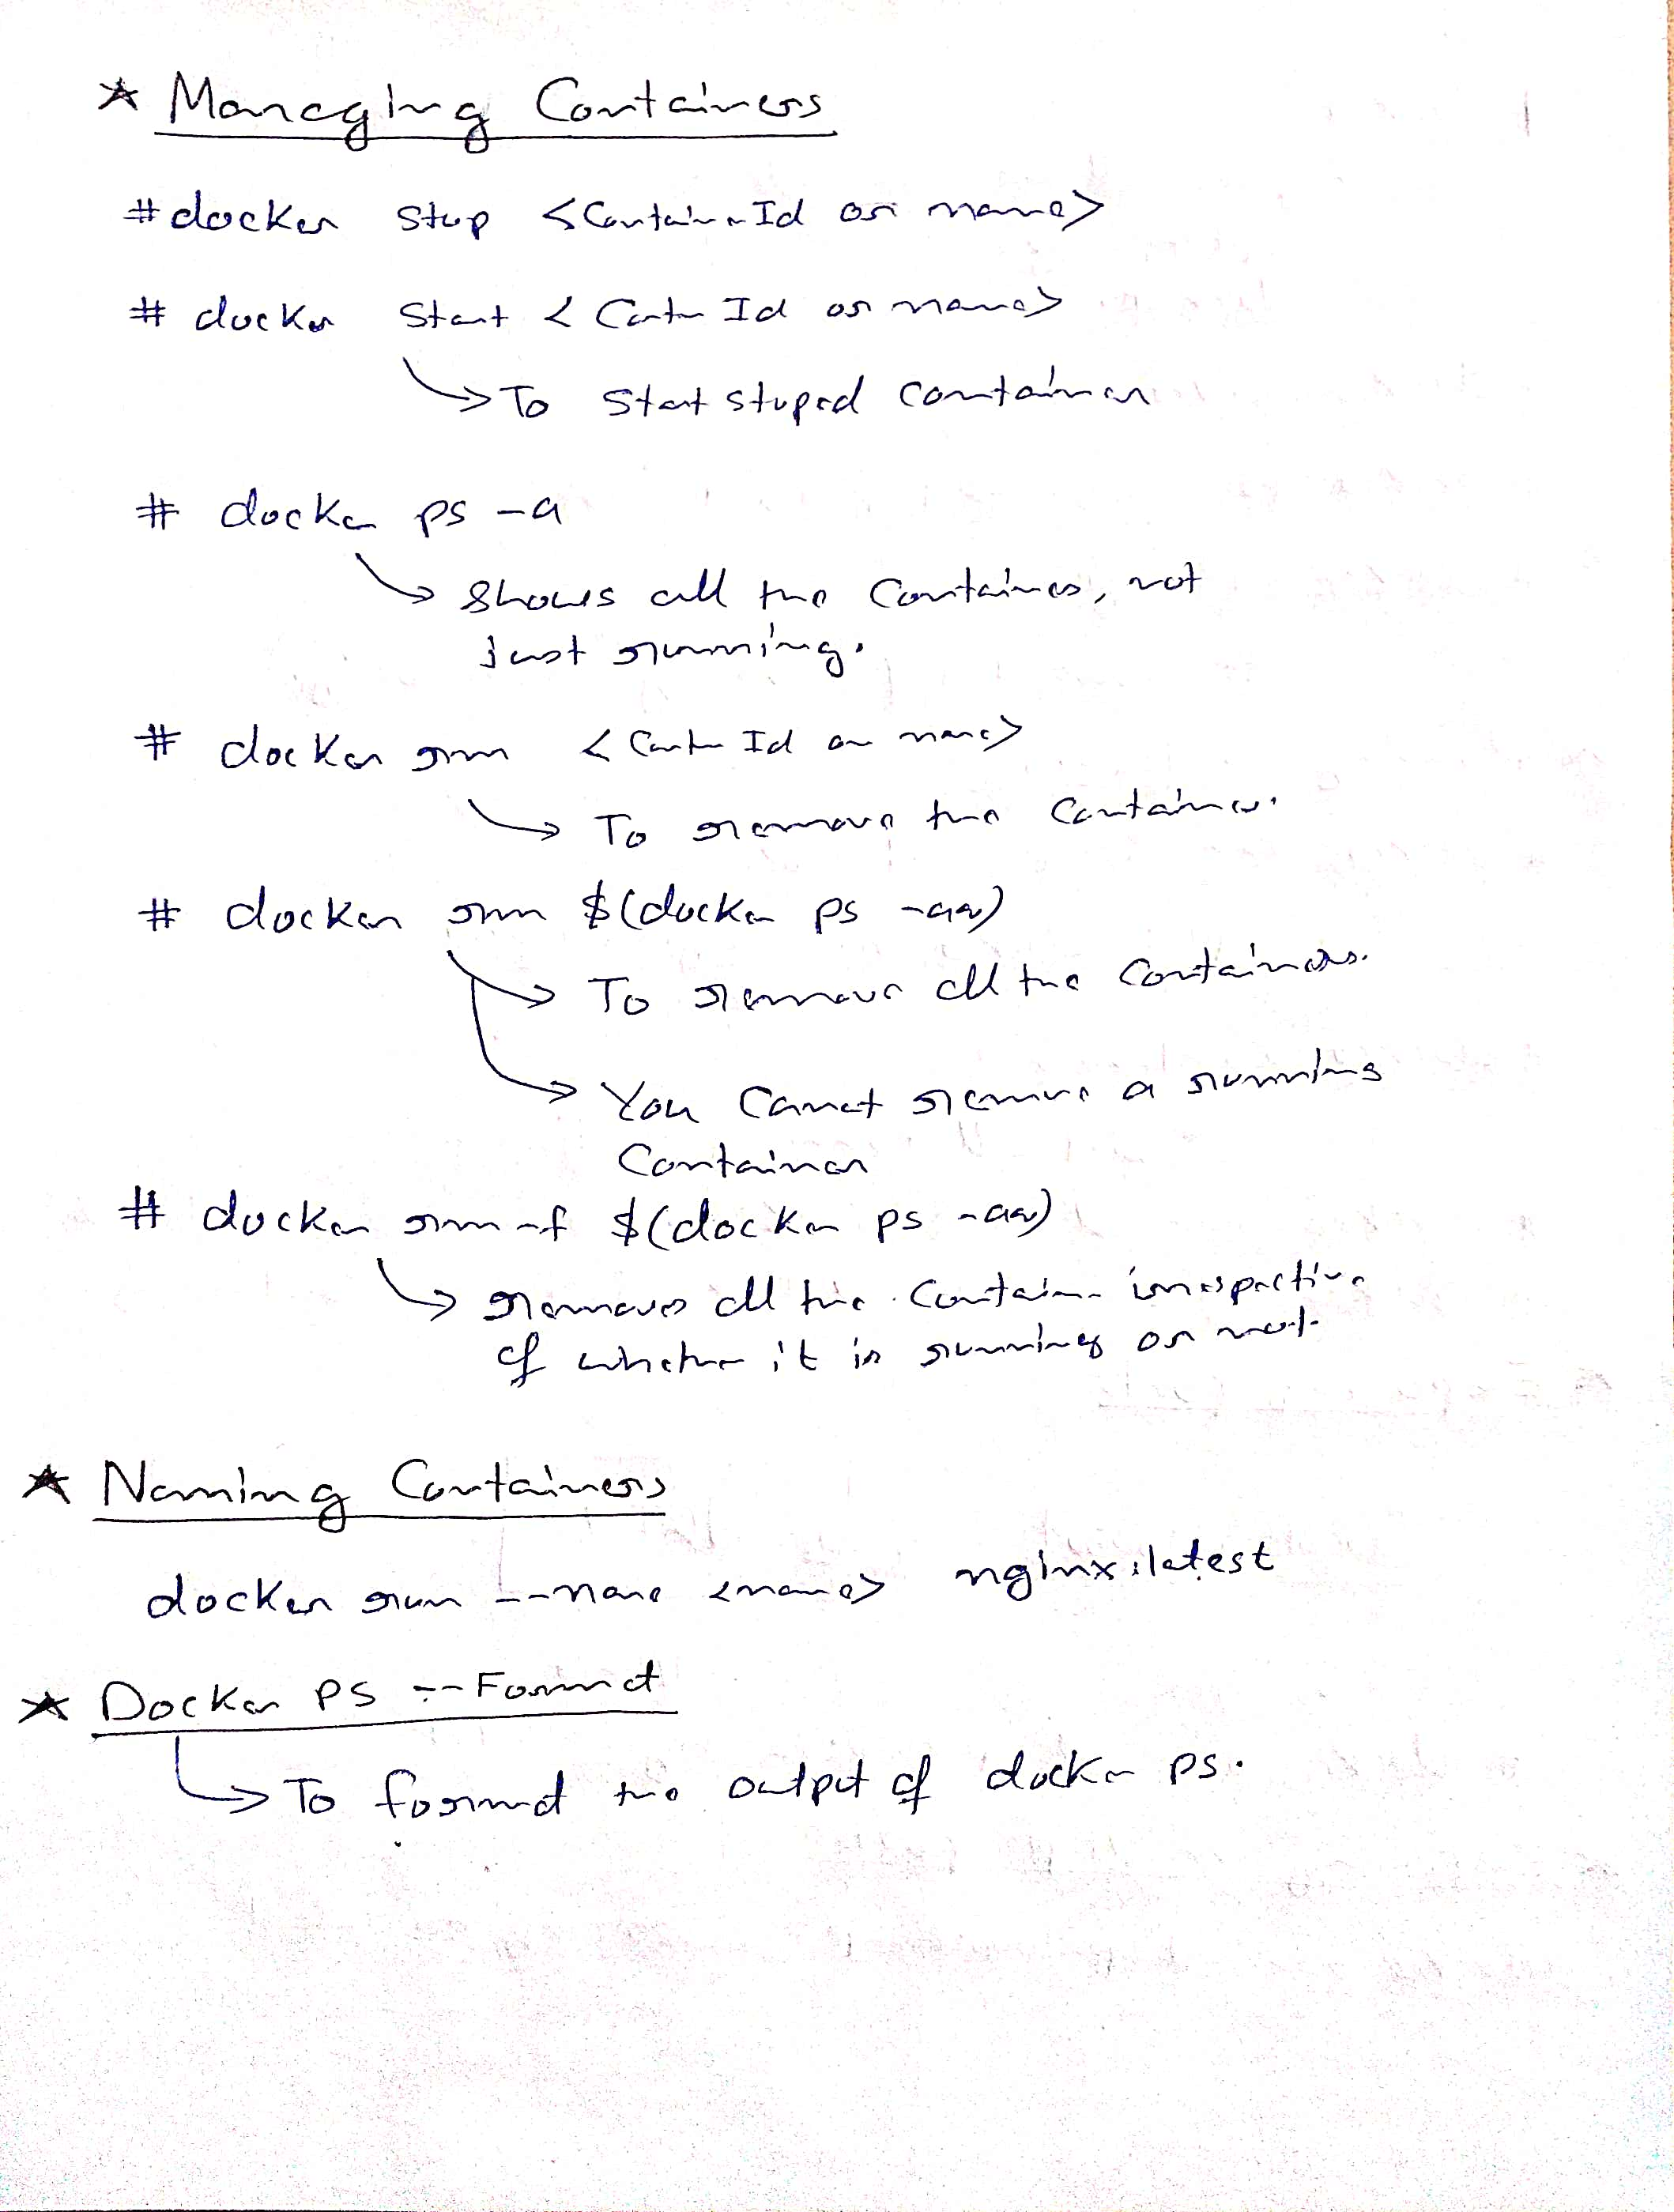 ★ Managing Containers
# docker stop <Container Id or name>
# docker start < Contr Id or name>
→ To start stoped container
# docker ps -a
→ Shows all the Containers, not
just running.
# docker rm < Contr Id or name>
→ To remove the Container.
# docker rm $(docker ps -aq)
→ To remove all the Containers.
→ You Cannot remove a running
Container
# docker rm -f $(docker ps -aq)
→ removes all the Container irrespective
of whether it is running or not.
★ Naming Containers
docker run --name <name> nginx:latest
★ Docker PS --Format
→ To format the output of docker ps.